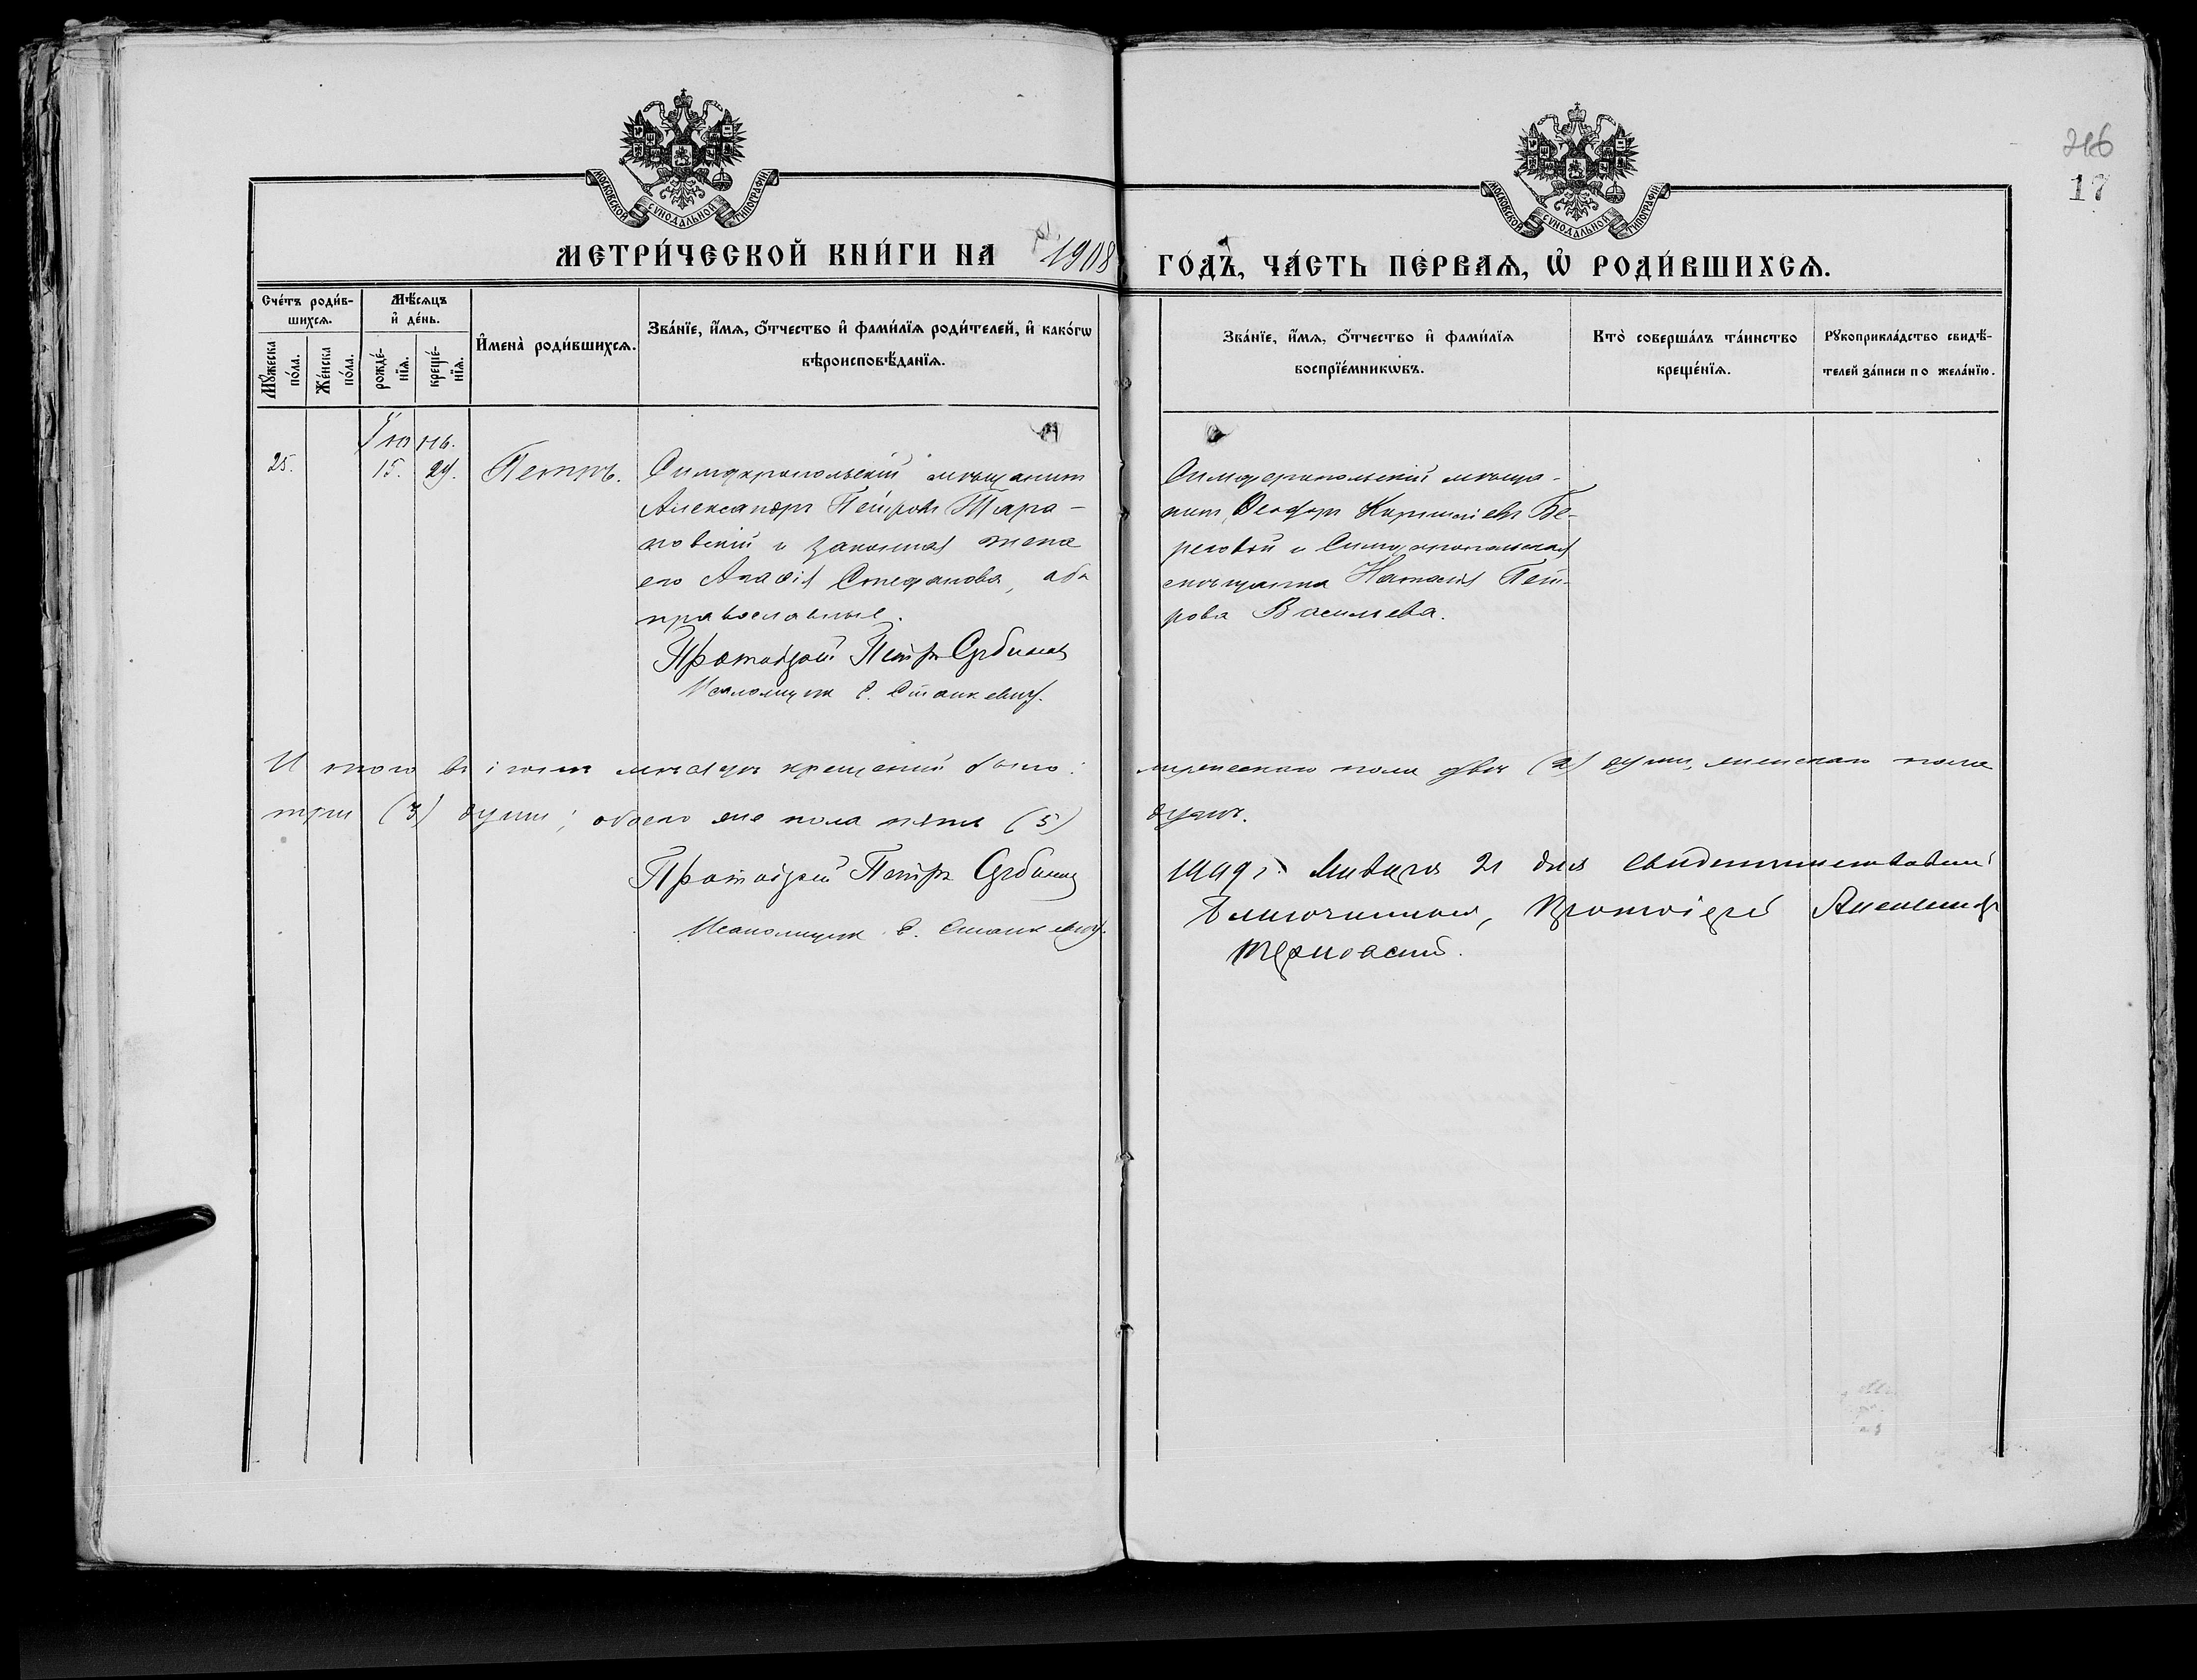 216
17
МОСКОВСКОЙ СѴНОДАЛЬНОЙ ТИПОГРАФІИ
МОСКОВСКОЙ СѴНОДАЛЬНОЙ ТИПОГРАФІИ
МЕТРИ́ЧЕСКОЙ КНИ́ГИ НА 1908 ГО́ДЪ, ЧА́СТЬ ПЕ́РВАѦ, Ѡ҆ РОДИ́ВШИХСѦ.
Сче́тъ роди́в-
шихсѧ.
Мꙋ́жеска по́ла.
Же́нска по́ла.
Мѣ́сѧцъ
и҆ де́нь.
рожде́-
нїѧ.
креще́-
нїѧ.
И҆мена̀ роди́вшихсѧ.
Зва́нїе, и҆́мѧ, ѻ҆́тчество и҆ фами́лїѧ роди́телей, и҆ како́гѡ
вѣроисповѣ́данїѧ.
Зва́нїе, и҆́мѧ, ѻ҆́тчество и҆ фами́лїѧ
воспрїе́мникѡвъ.
Кто̀ соверша́лъ та́инство
креще́нїѧ.
Рꙋкоприкла́дство свидѣ́-
телей за́писи по жела́нїю.
Іюнь.
25. 15. 29. Петръ.
Симферопольскій мѣщанинъ
Александръ Петровъ Тара-
новскій и законная жена
его Стефанова, оба
православные.
Протоіерей Петръ Сербиновъ
Псаломщикъ С. Станкевичъ.
Симферопольскій мѣща-
нинъ Ѳеодоръ Бе-
реговой и Симферопольская
мѣщанка Наталія Пет-
рова Васильева.
Итого въ іюнѣ мѣсяцѣ крещеній было: мужескаго пола двѣ (2) души, женскаго пола
три (3) души; обоего же пола пять (5) душъ.
Протоіерей Петръ Сербиновъ
Псаломщикъ С. Станкевичъ.
1909 г. Января 21 дня свидетельствовалъ
Благочинный, Протоіерей Александръ
Терновскій.